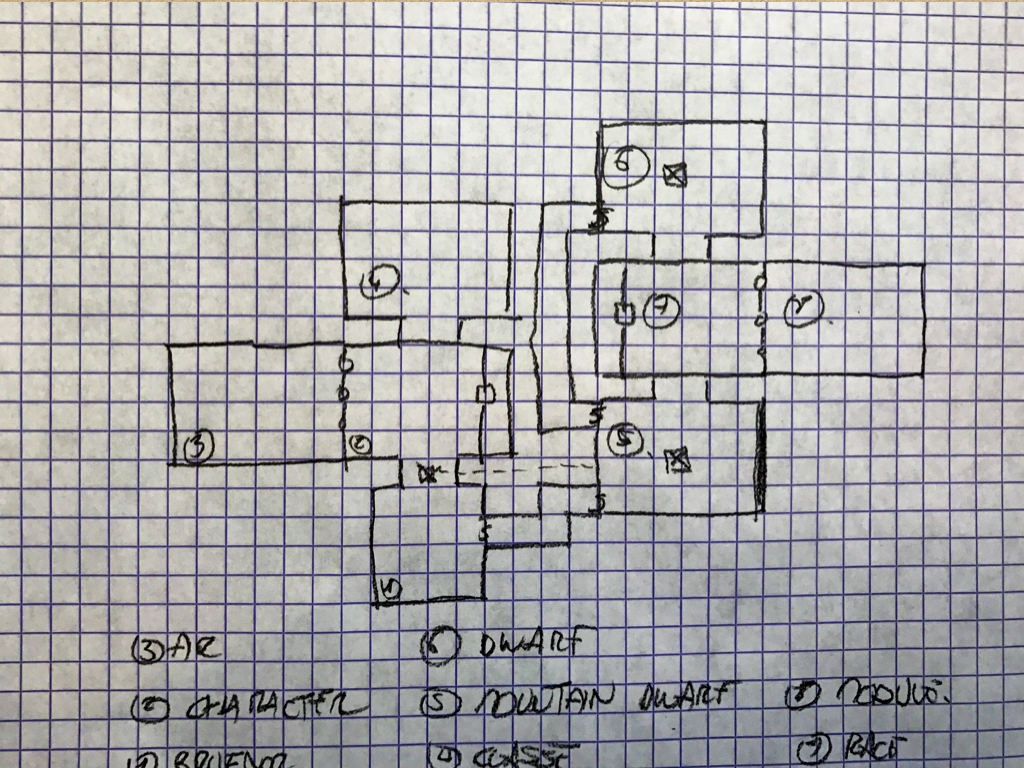 6
4
7
3
2
5
1
3 AR 6 DWARF
2 CHARACTER 5 MOUNTAIN DWARF 8
1 BRUENOR 4 CLASSE 7 RACE